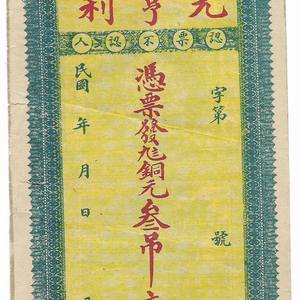 元亨利
認票不認人
字第 號
憑票發兌銅元叁吊
民國 年 月 日